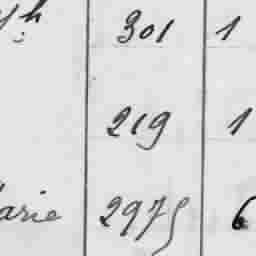 301 1
219 1
arie 2975 6